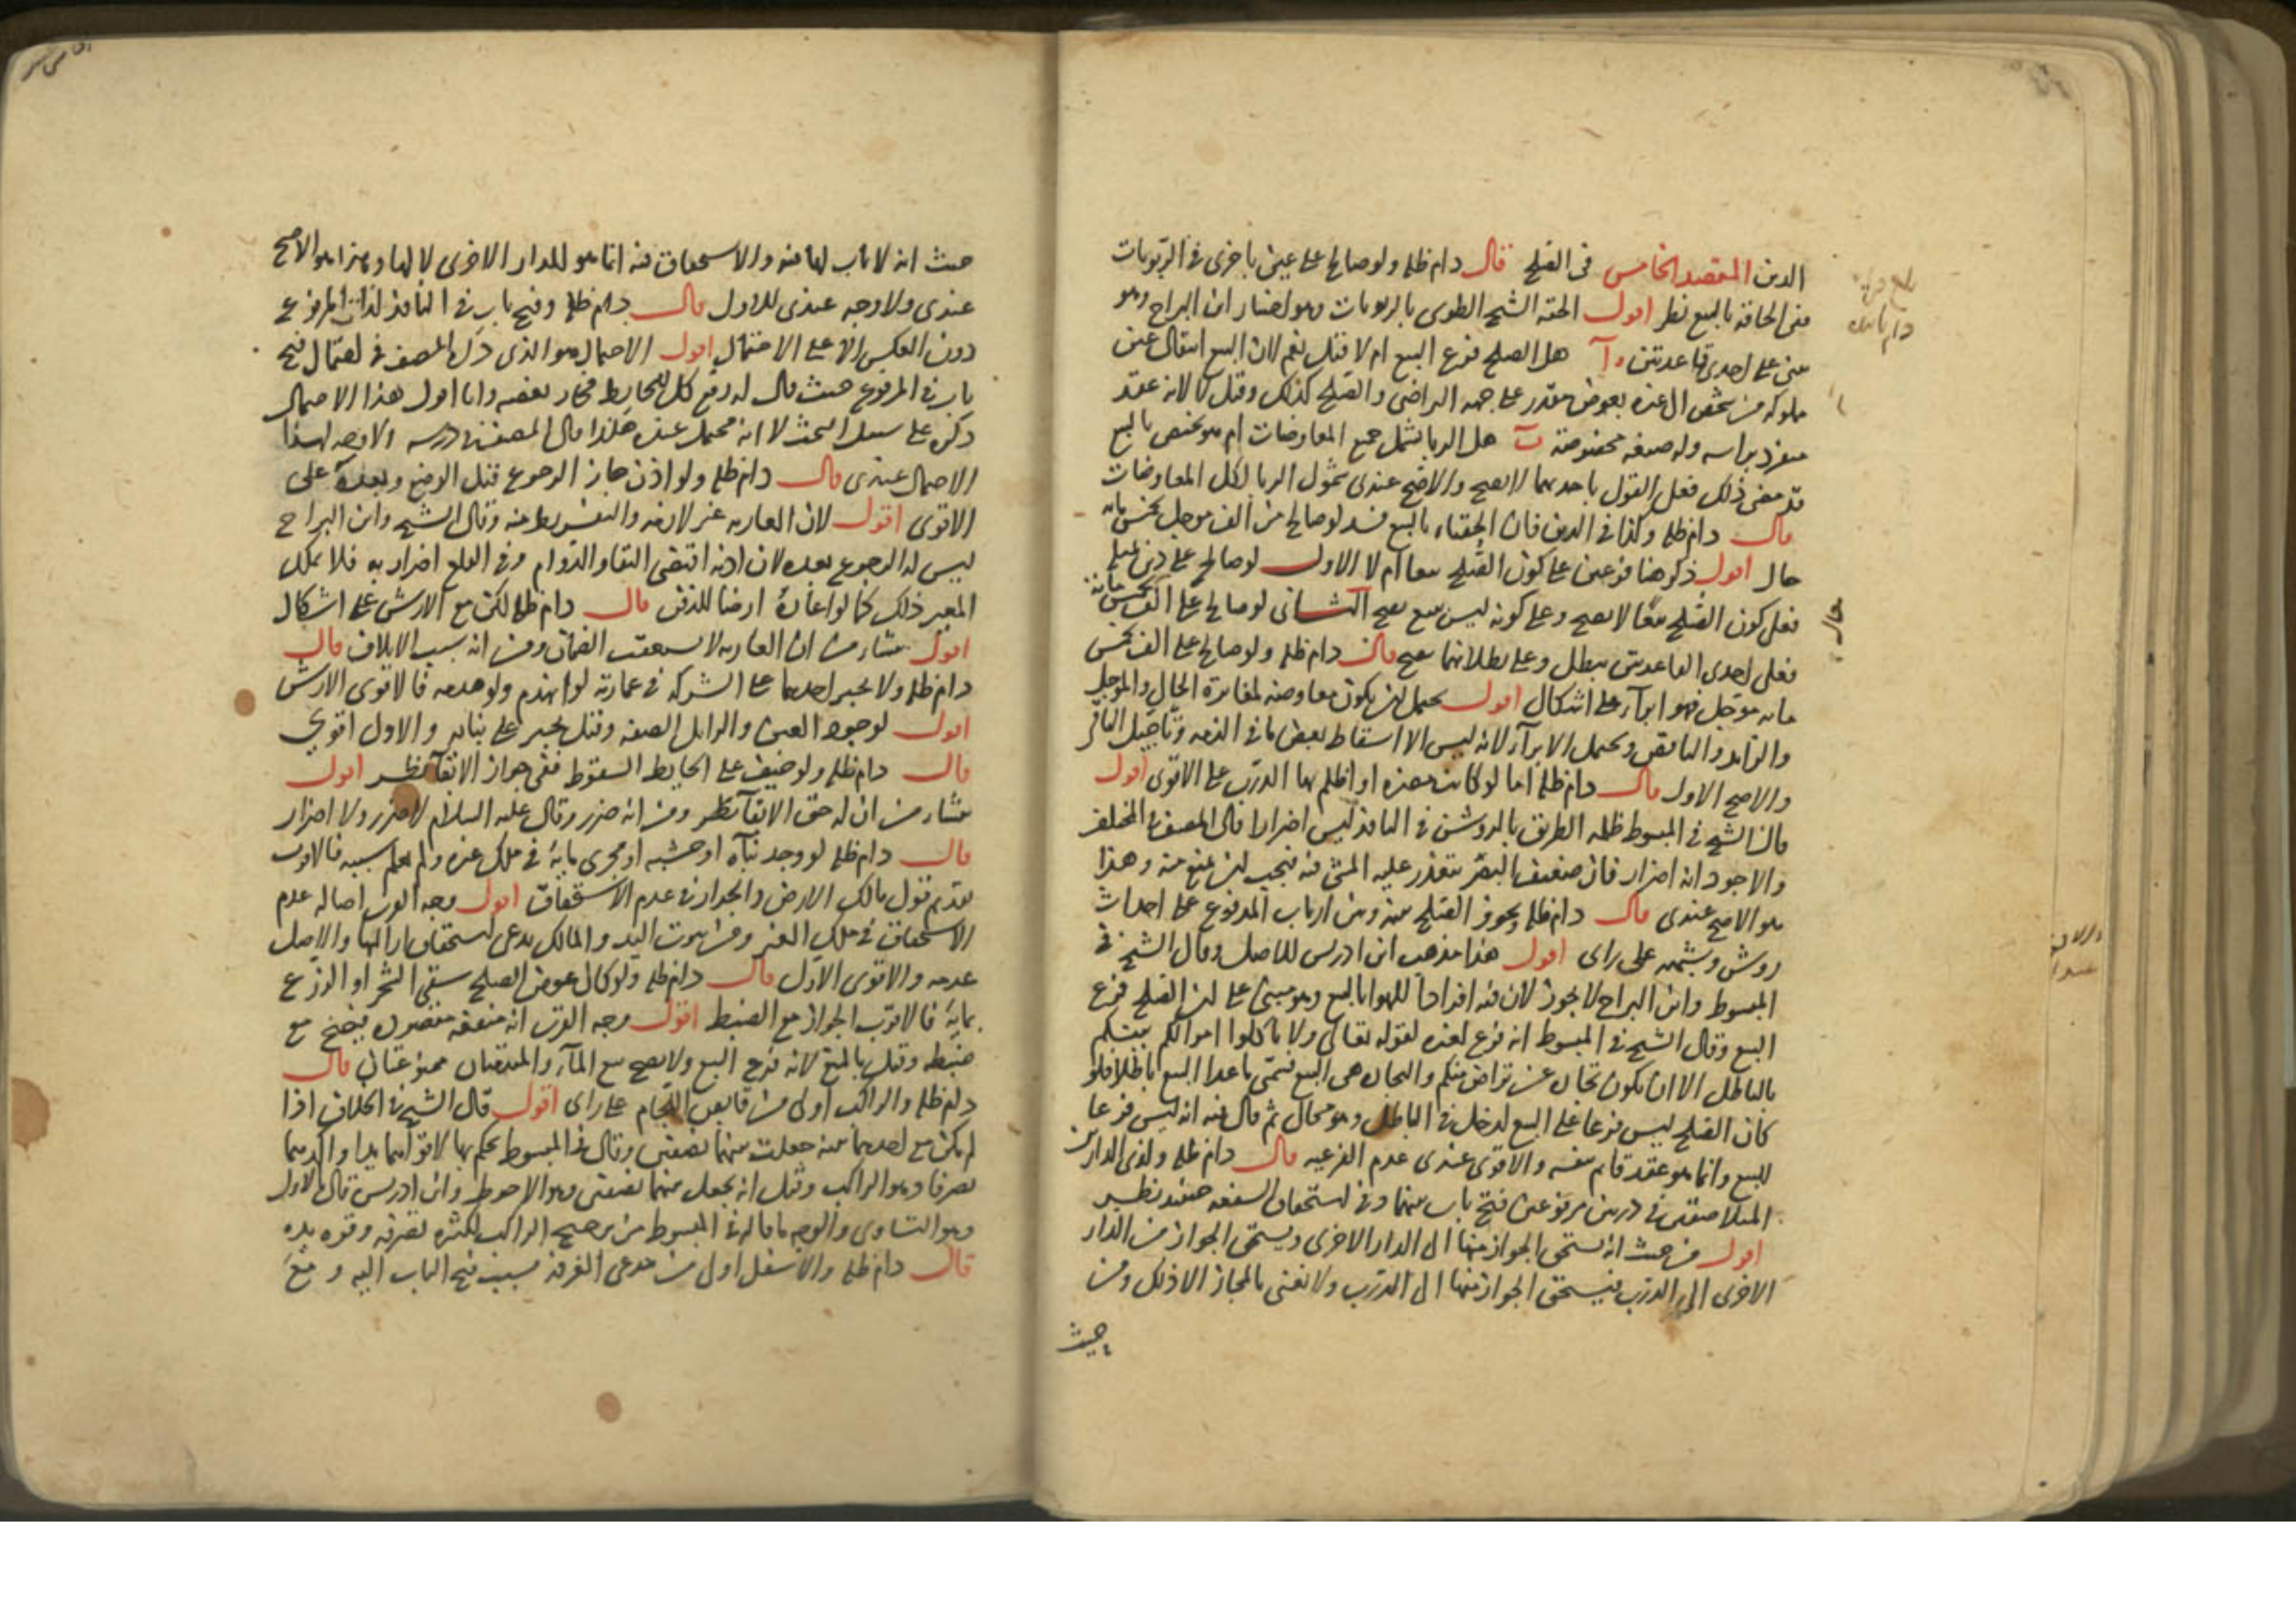 الدين المقصد الخامس في الصلح قال دام ظله ولو صالح على عين باخرى في الربويات
ففي الحاقه بالبيع نظر اقول الحقه الشيخ الطوسي بالربويات وهو اختيار ابن البراج وهو
مبني على احدى قاعدتين آ هل الصلح فرع البيع ام لا قيل نعم لان البيع انتقال عين
مملوكه من شخص الى غيره بعوض مقدر على جهه التراضي والصلح كذلك وقيل لا لانه عقد
منفرد براسه وله صيغه مخصوصة ب هل الربا يشمل جميع المعاوضات ام هو مختص بالبيع
قد مضى ذلك فعلى القول باحدهما لا يصح والاصح عندي شمول الربا لكل المعاوضات
قال دام ظله وكذا في الدين فان الحقناه بالبيع فسد لو صالح من الف موجل بخمس مايه
حال اقول ذكر هنا فرعين على كون الصلح بيعا ام لا الاول لو صالح على دين بمثله
فعلى كون الصلح بيعا لا يصح وعلى كونه ليس ببيع يصح الثاني لو صالح على الف بخمس مائة
فعلى احدى القاعدتين يبطل وعلى بطلانهما يصح قال دام ظله ولو صالح على الف بخمس
مايه موجل فهو ابرآء على اشكال اقول يحتمل ان يكون معاوضه لمغايرة الحال والموجل
والزايد والناقص ويحتمل الابرآء لانه ليس الا اسقاط بعض ما في الذمه وتاجيل الباقي
والاصح الاول قال دام ظله اما لو كانت مضره او اظلم بها الدرب على الاقوى اقول
قال الشيخ في المبسوط ظلمه الطريق بالروشن في النافذ ليس اضرارا قال المصنف في المختلف
والاجود انه اضرار فان ضعيف البصر يتعذر عليه المشي فيه فيجب ان يمنع منه وهذا
هو الاصح عندي قال دام ظله ويجوز الصلح بينه وبين ارباب المرفوع على احداث
روشن وشبهه على راى اقول هذا مذهب ابن ادريس للاصل وقال الشيخ في
المبسوط وابن البراج لا يجوز لان فيه افرادا للهوا بالبيع وهو مبني على ان الصلح فرع
البيع وقال الشيخ في المبسوط انه فرع لغيره لقوله تعالى ولا تاكلوا اموالكم بينكم
بالباطل الا ان تكون تجارة عن تراض منكم والتجارة هي البيع فبقى ما عدا البيع باطلا فلو
كان الصلح ليس فرعا على البيع لدخل في الباطل وهو محال ثم قال فيه انه ليس فرعا
للبيع وانما هو عقد قايم بنفسه والاقوى عندي عدم الفرعيه قال دام ظله ولذي الدارين
المتلاصقتين في دربين مرفوعين فتح باب بينهما وفي استحقاق الشفعه حينئذ نظر
اقول من حيث انه يستحق الجواز منها الى الدار الاخرى ويستحق الجواز من الدار
الاخرى الى الدرب فيستحق الجواز منها الى الدرب ولا نعني بالمجاز الا ذلك ومن
حيث
حيث انه لا باب لها فيه والاستحقاق فيه انما هو للدار الاخرى لا لها وهذا هو الاصح
عندي ولا وجه عندي للاول قال دام ظله وفتح باب في النافذ لذات المرفوع
دون العكس الا على الاحتمال اقول الاحتمال هو الذي ذكره المصنف في احتمال فتح
باب في المرفوع حيث قال له رفع كل الحايط فجاز بعضه وانا اقول هذا الاحتمال
ذكره على سبيل البحث لا انه محتمل عنده هكذا قال المصنف في درسه لا وجه لهذا
الاحتمال عندي قال دام ظله ولو اذن جاز الرجوع قبل الوضع وبعده على
الاقوى اقول لان العاريه غير لازمه والتفريط منه وقال الشيخ وابن البراج
ليس له الرجوع بعده لان اذنه اقتضى البقاء والدوام وفي القلع اضرار به فلا يملك
المعير ذلك كما لو اعاره ارضا للدفن قال دام ظله لكن مع الارش على اشكال
اقول ينشاء من ان العاريه لا يستعقب الضمان ومن انه سبب الاتلاف قال
دام ظله ولا يجبر احدهما على الشركه في عمارته لو انهدم ولو هدمه فالاقوى الارش
اقول لوجود العين والزايل الصفه وقيل يجبر على بنائه والاول اقوى
قال دام ظله ولو خيف على الحايط السقوط ففي جواز الابقآء نظر اقول
ينشاء من ان له حق الابقآء نظر ومن انه ضرر وقال عليه السلام لا ضرر ولا اضرار
قال دام ظله لو وجد بنآه او خشبه او مجرى مايه في ملك غيره ولم يعلم سببه فالاقرب
تقديم قول مالك الارض والجدار في عدم الاستحقاق اقول وجه القرب اصاله عدم
الاستحقاق في ملك الغير ومن ثبوت اليد والمالك يدعي استحقاق ازالتها والاصل
عدمه والاقوى الاول قال دام ظله ولو كان عوض الصلح سقي الشجر او الزرع
بمايه فالاقرب الجواز مع الضبط اقول وجه القرب انه منفعه مقصوده فيصح مع
ضبطه وقيل بالمنع لانه فرع البيع ولا يصح بيع المآء والمقدمتان ممنوعتان قال
دام ظله والراكب اولى من قابض اللجام على راى اقول قال الشيخ في الخلاف اذا
لم يكن مع احدهما بينه جعلت بينهما نصفين وقال في المبسوط يحكم بها لاقواهما يدا واكدهما
تصرفا وهو الراكب وقيل انه يجعل بينهما نصفين وهو الاحوط وابن ادريس قال بالاول
وهو التساوي والوجه ما قاله في المبسوط من ترجيح الراكب لكثره تصرفه وقوه يده
قال دام ظله والاسفل اولى من مدعي الغرفه بسبب فتح الباب اليه ومع